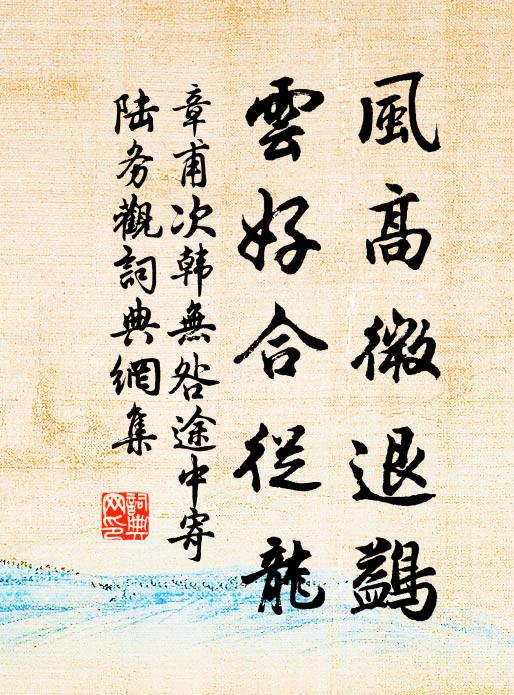 風高微退鷁
雲好合從龍
章甫次韩無咎途中寄
陆务觀詞典網集
詞典網印